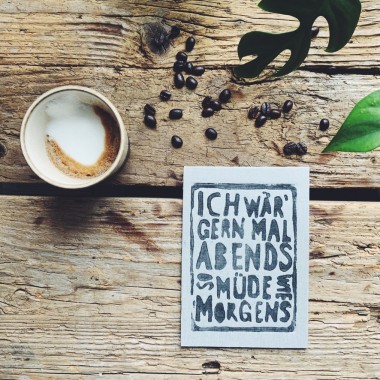 ICH WÄR'
GERN MAL
ABENDS
SO MÜDE WIE
MORGENS